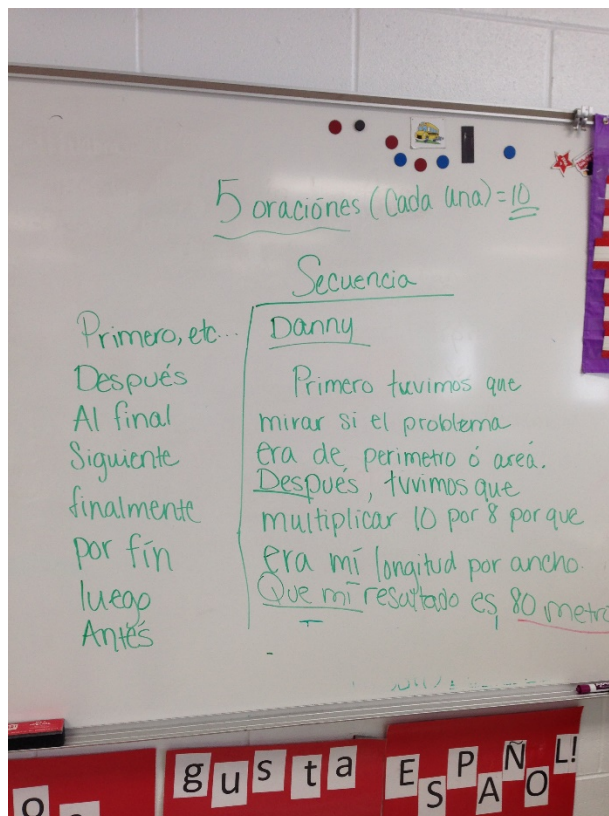 5 oraciónes (Cada una) = 10
Secuencia
Primero, etc...
Después
Al final
Siguiente
finalmente
por fín
luego
Antés
Danny
Primero tuvimos que
mirar si el problema
era de perimetro ó areá.
Después, tuvimos que
multiplicar 10 por 8 por que
era mí longitud por ancho.
Que mí resultado es, 80 metro
gusta ESPAÑOL!